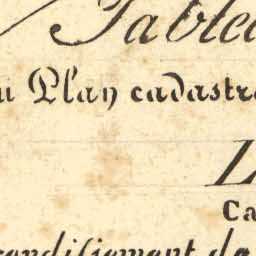 Tablea
u Plan cadastra
L
Ca
rondissement de